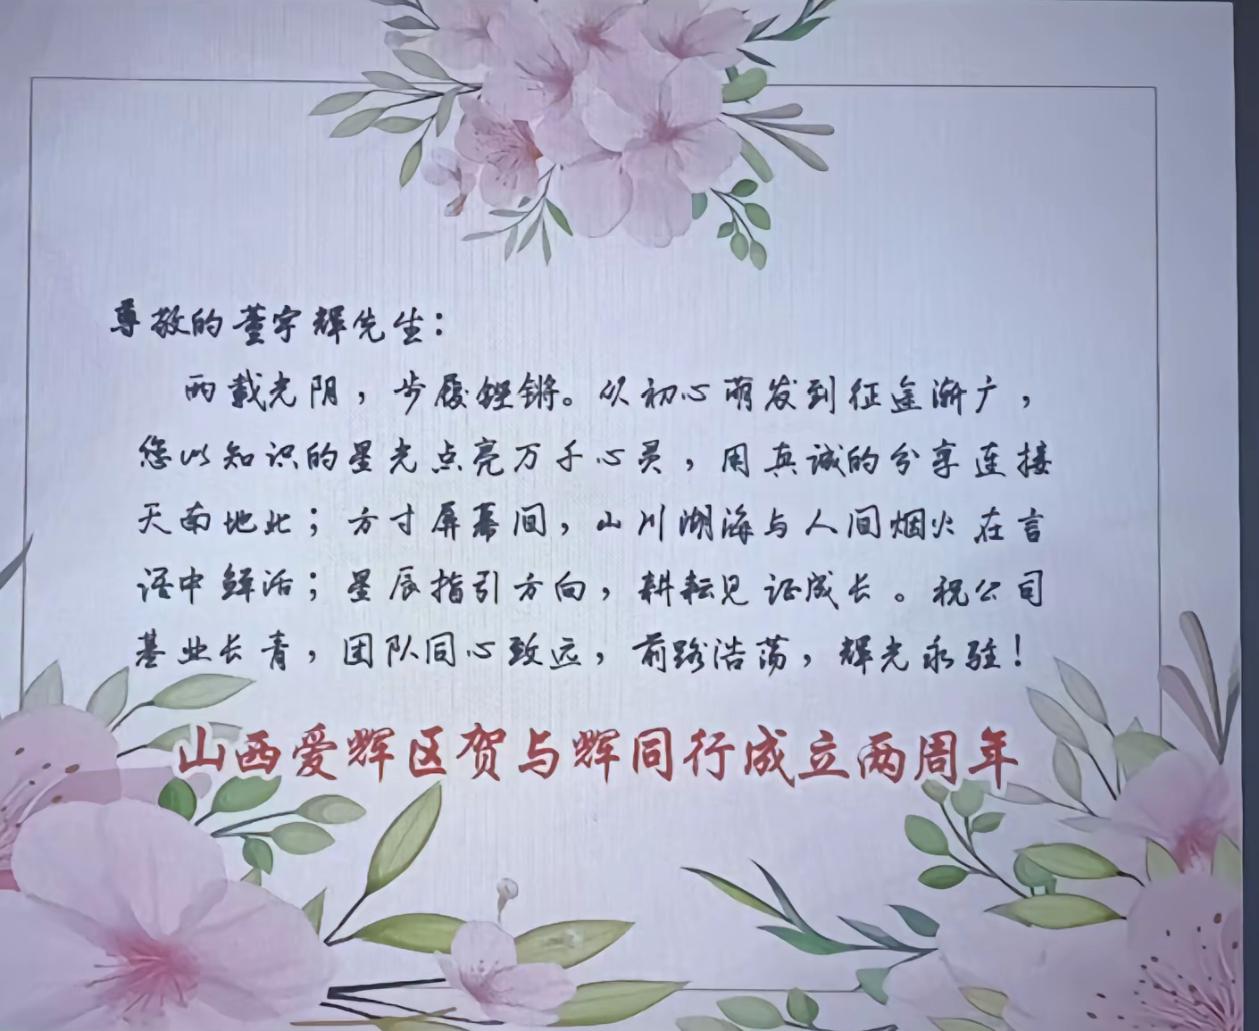 尊敬的董宇辉先生：
两载光阴，步履铿锵。从初心萌发到征途渐广，
您以知识的星光点亮万千心灵，用真诚的分享连接
天南地北；方寸屏幕间，山川湖海与人间烟火在言
语中鲜活；星辰指引方向，耕耘见证成长。祝公司
基业长青，团队同心致远，前路浩荡，辉光永驻！
山西爱辉区贺与辉同行成立两周年